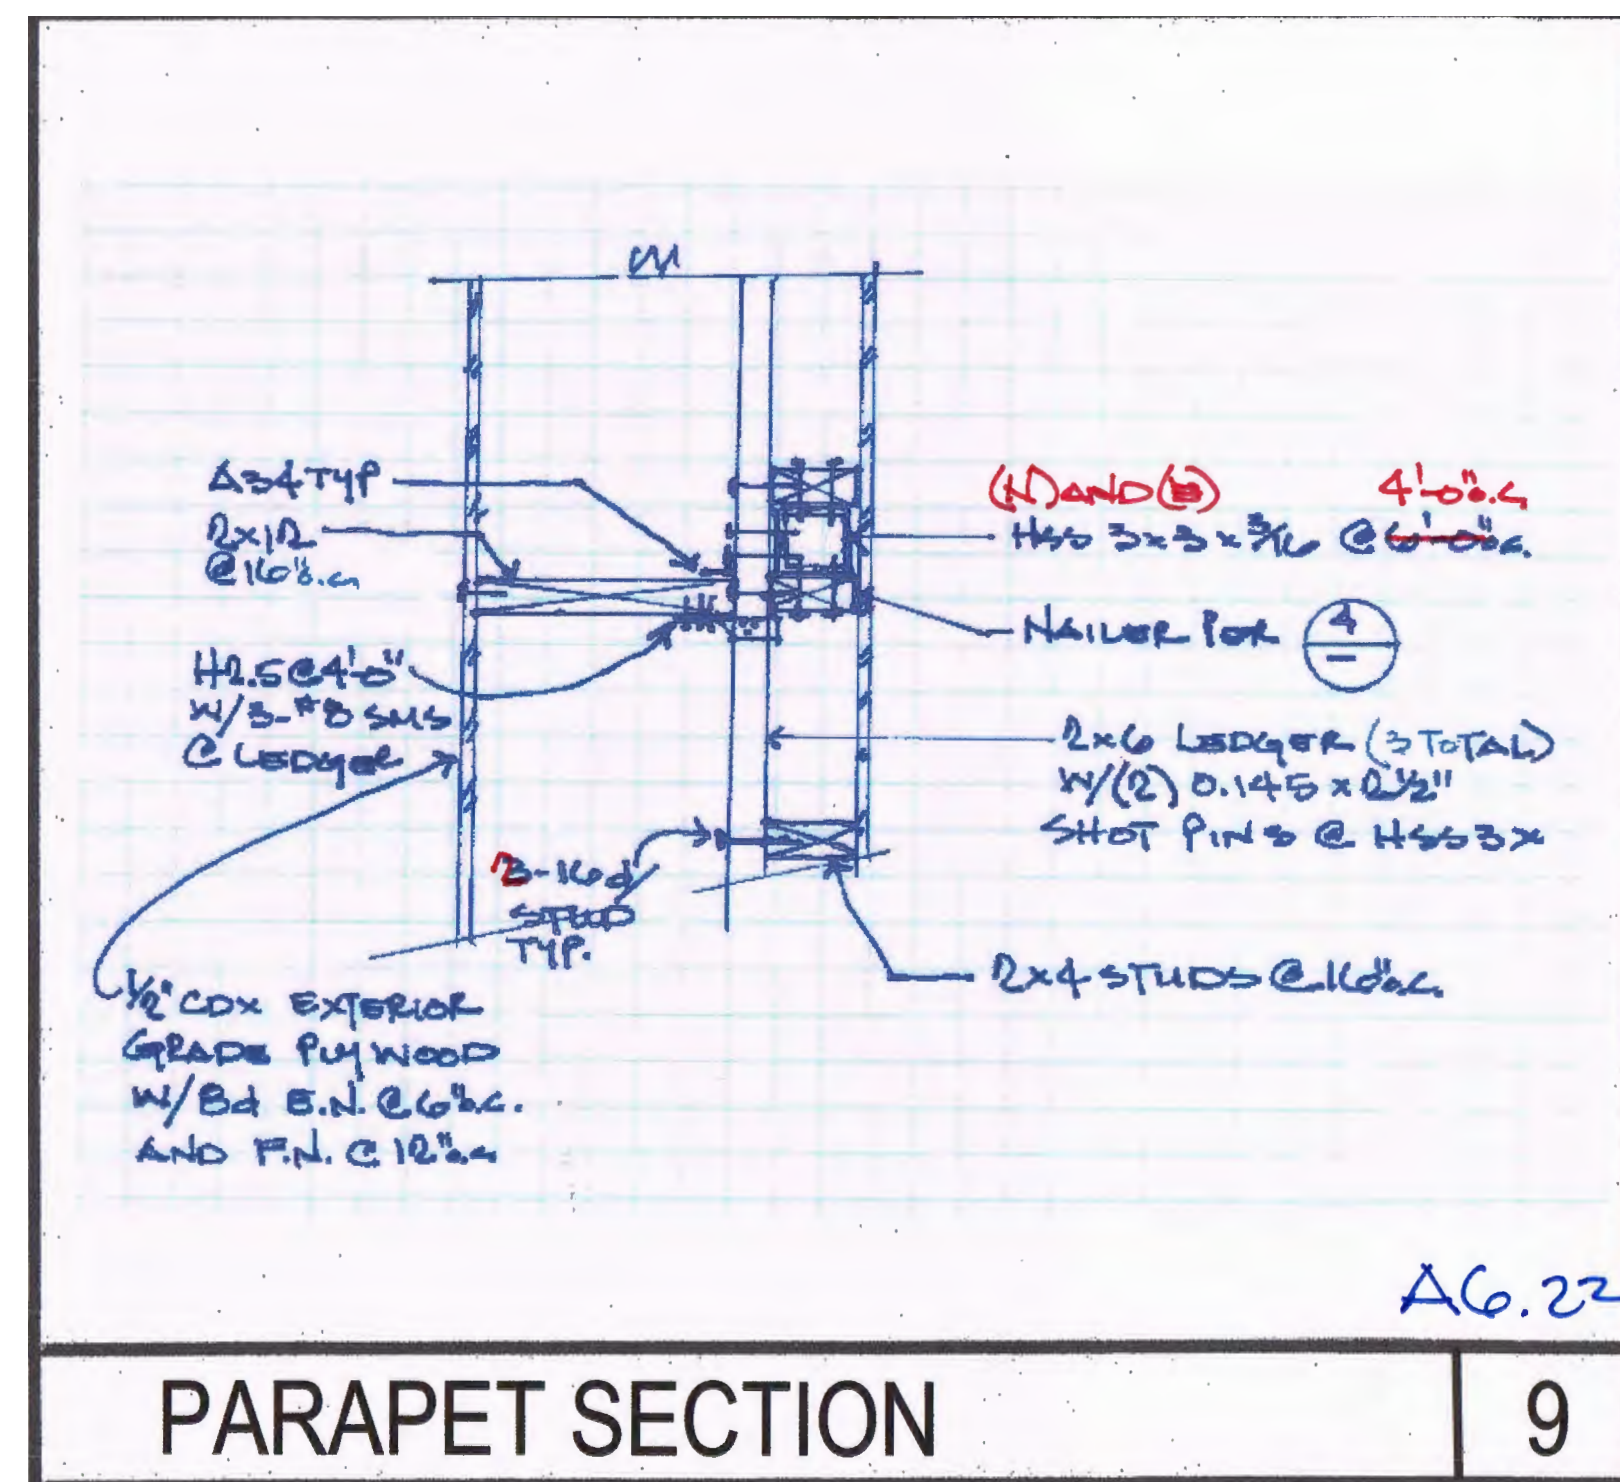 A34 TYP
2x12
@16"o.c.
H2.5 @ 4'-0"
W/3-#8 SMS
@ LEDGER
(N) AND (E) 4'-0"o.c.
HSS 3x3x3/16 @ 6'-0"o.c.
NAILER PER 4
-
2x6 LEDGER (3 TOTAL)
W/(2) 0.145 x 2½"
SHOT PINS @ HSS3x
-16d
STUD
TYP.
2x4 STUDS @ 16"o.c.
½" CDX EXTERIOR
GRADE PLYWOOD
W/8d E.N. @ 6"o.c.
AND F.N. @ 12"o.c.
A6.22
PARAPET SECTION 9